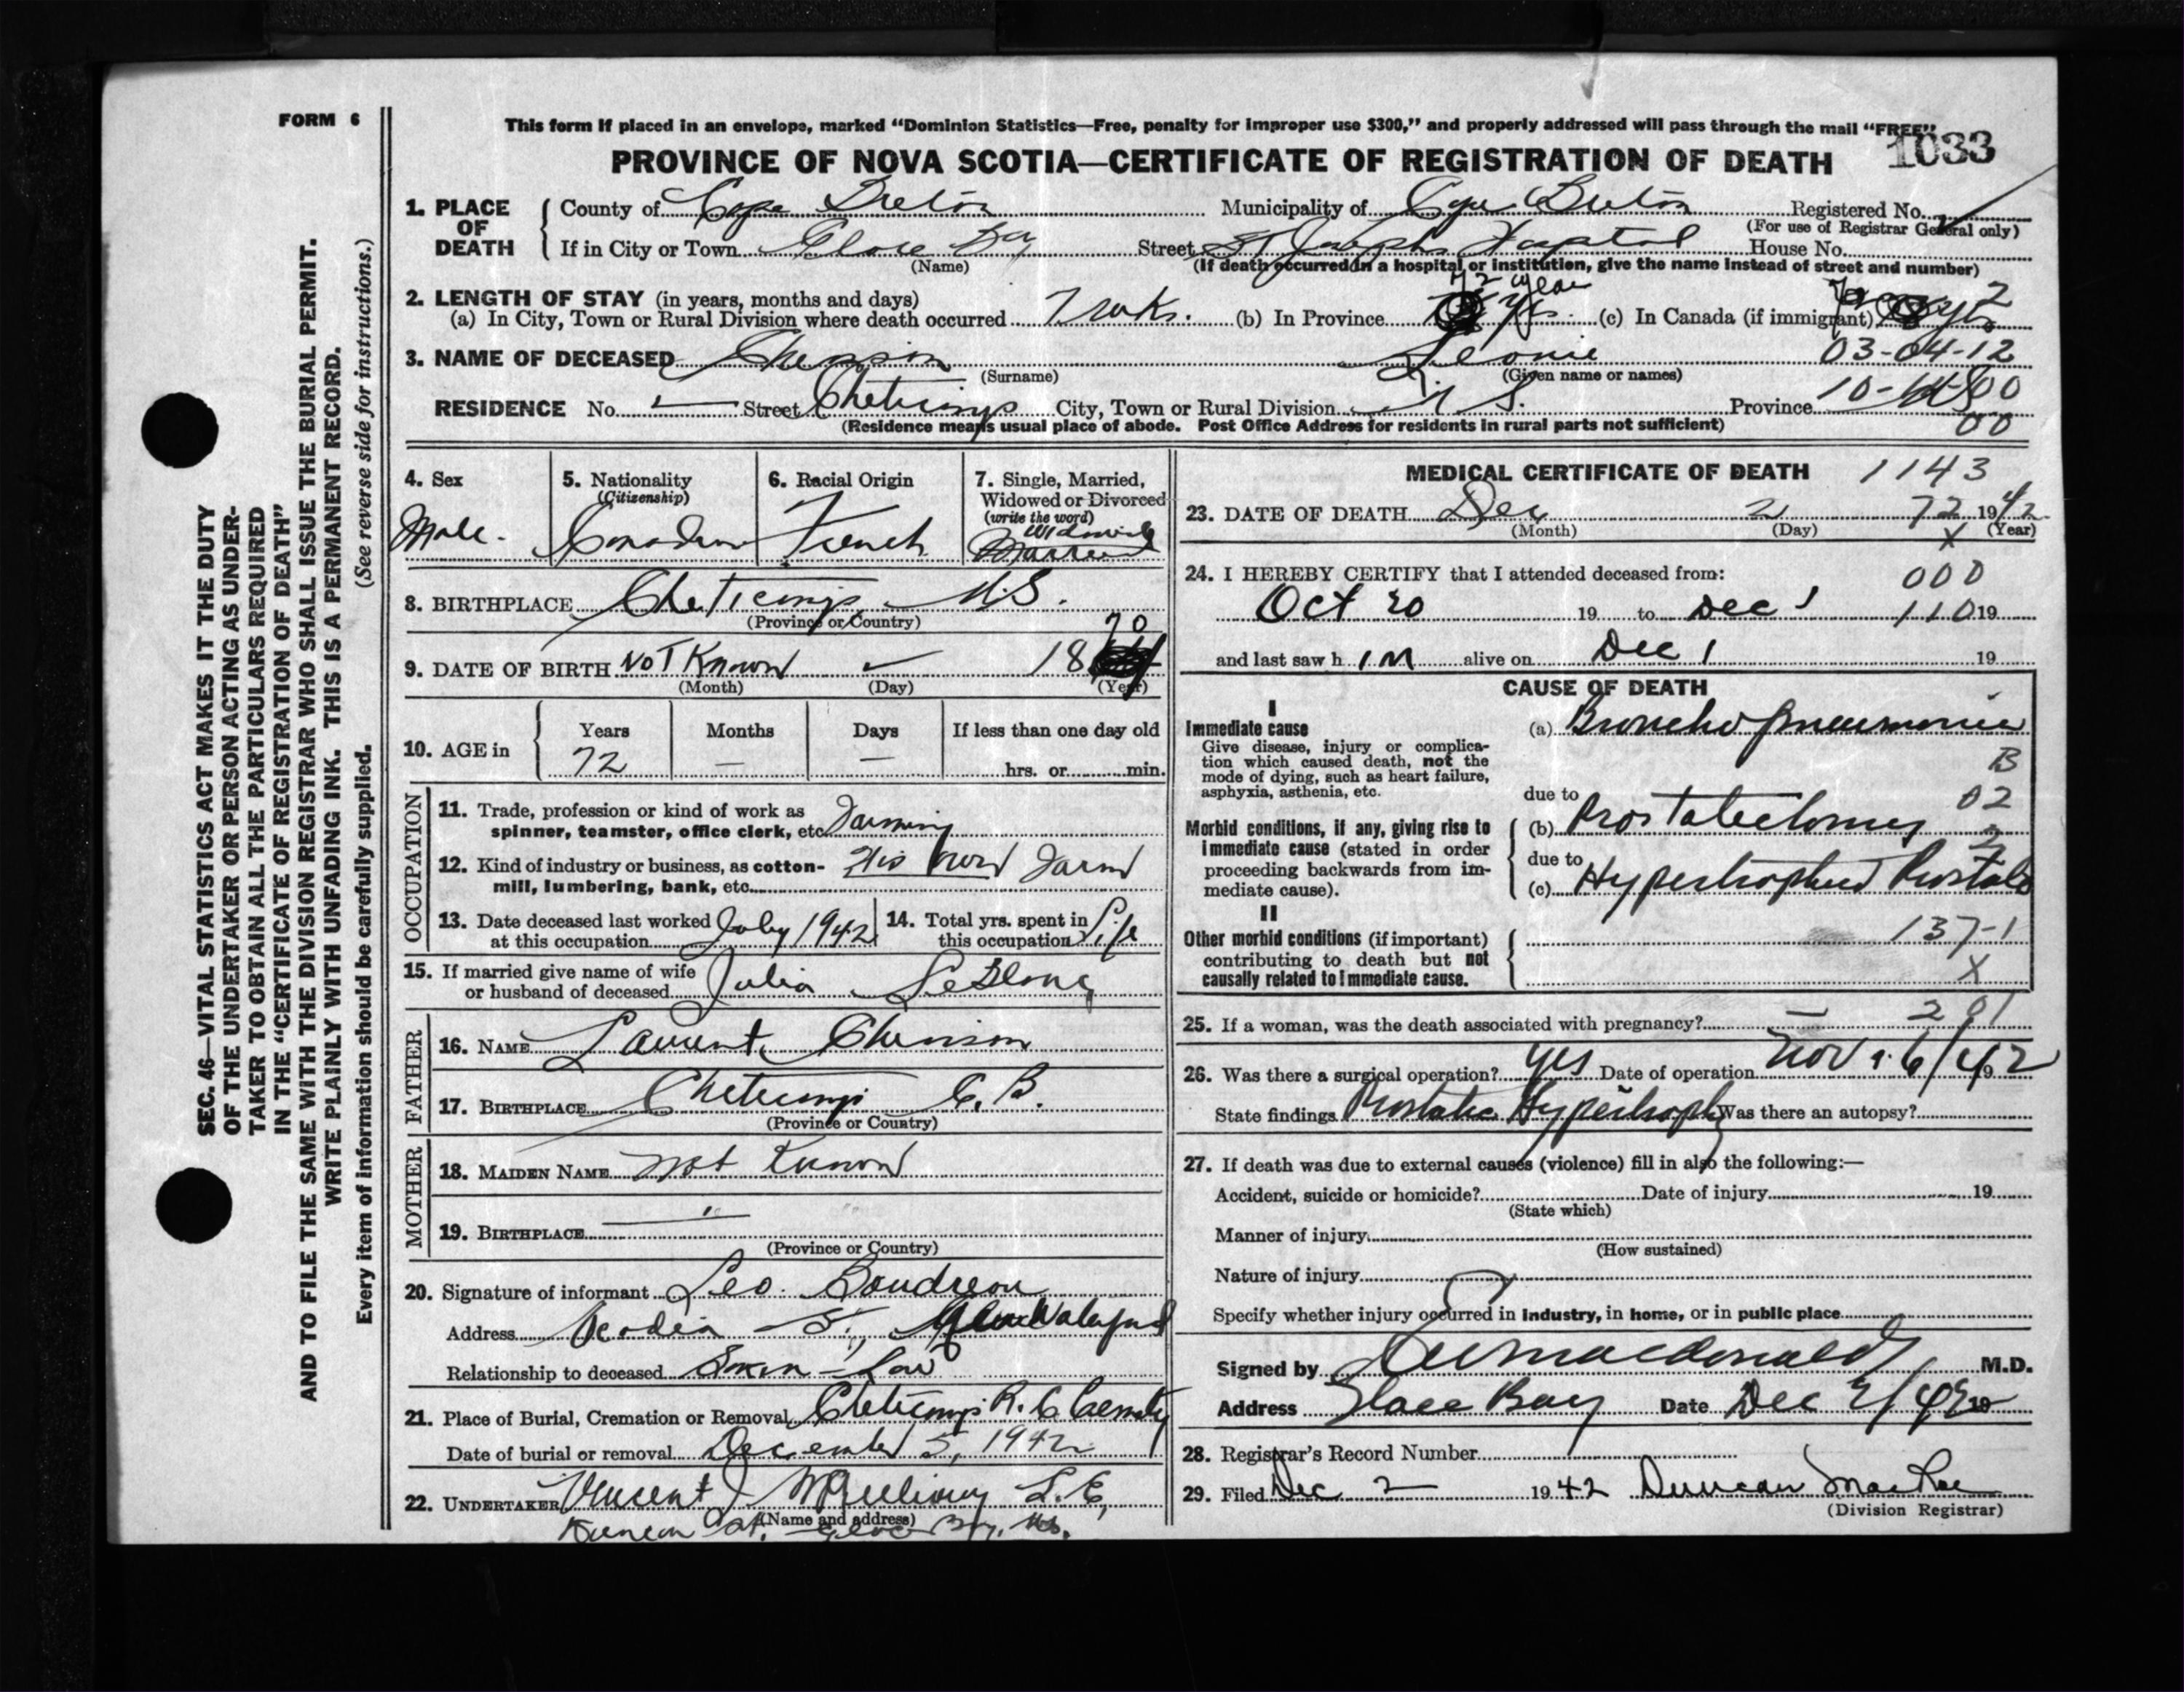 FORM 6
This form if placed in an envelope, marked "Dominion Statistics—Free, penalty for improper use $300," and properly addressed will pass through the mail "FREE"
1033
PROVINCE OF NOVA SCOTIA—CERTIFICATE OF REGISTRATION OF DEATH
1. PLACE OF DEATH
County of Cape Breton Municipality of Cape Breton Registered No.
(For use of Registrar General only)
If in City or Town Glace Bay Street St Josephs Hospital House No.
(Name) (If death occurred in a hospital or institution, give the name instead of street and number)
72 year
2. LENGTH OF STAY (in years, months and days)
(a) In City, Town or Rural Division where death occurred 7 wks. (b) In Province yrs. (c) In Canada (if immigrant) yrs 2
3. NAME OF DECEASED Leonie 03-04-12
(Surname) (Given name or names)
RESIDENCE No. — Street Cheticamp City, Town or Rural Division N. S. Province 10- 00
(Residence means usual place of abode. Post Office Address for residents in rural parts not sufficient) 00
4. Sex
Male.
5. Nationality
(Citizenship)
Canadian
6. Racial Origin
French
7. Single, Married, Widowed or Divorced
(write the word)
Married
8. BIRTHPLACE Cheticamp, N.S.
(Province or Country)
70
9. DATE OF BIRTH Not Known 18
(Month) (Day) (Year)
10. AGE in
Years 72 Months — Days — If less than one day old
hrs. or min.
OCCUPATION
11. Trade, profession or kind of work as spinner, teamster, office clerk, etc. Farming
12. Kind of industry or business, as cotton-mill, lumbering, bank, etc. His own Farm
13. Date deceased last worked at this occupation July 1942
14. Total yrs. spent in this occupation Life
15. If married give name of wife or husband of deceased Julia LeBlanc
FATHER
16. NAME Laurent
17. BIRTHPLACE Cheticamp C. B.
(Province or Country)
MOTHER
18. MAIDEN NAME not Known
19. BIRTHPLACE "
(Province or Country)
20. Signature of informant Leo. Boudreau
Address St.,
Relationship to deceased Law
21. Place of Burial, Cremation or Removal Cheticamp R. C.
Date of burial or removal December 5, 1942
22. UNDERTAKER Vincent J
(Name and address)
Glace Bay, N.S.
MEDICAL CERTIFICATE OF DEATH 1143
23. DATE OF DEATH Dec 2 72 1942
(Month) (Day) (Year)
X
24. I HEREBY CERTIFY that I attended deceased from: 000
Oct 20 19 to Dec 1 110 19
and last saw h im alive on Dec 1 19
CAUSE OF DEATH
I
Immediate cause
Give disease, injury or complication which caused death, not the mode of dying, such as heart failure, asphyxia, asthenia, etc.
(a) Broncho pneumonia
B
due to 02
Morbid conditions, if any, giving rise to immediate cause (stated in order proceeding backwards from immediate cause).
(b) Prostatectomy
2
due to
(c) Hypertrophied Prostate
II
Other morbid conditions (if important) contributing to death but not causally related to immediate cause.
137-1
X
25. If a woman, was the death associated with pregnancy? — 201
26. Was there a surgical operation? yes Date of operation Nov 6/42
State findings Prostatic Hypertrophy Was there an autopsy?
27. If death was due to external causes (violence) fill in also the following:—
Accident, suicide or homicide? Date of injury 19
(State which)
Manner of injury
(How sustained)
Nature of injury
Specify whether injury occurred in industry, in home, or in public place
Signed by MacDonald M.D.
Address Glace Bay Date Dec 2/42 19
28. Registrar's Record Number
29. Filed Dec 2 1942 Duncan MacRae
(Division Registrar)
SEC. 46—VITAL STATISTICS ACT MAKES IT THE DUTY
OF THE UNDERTAKER OR PERSON ACTING AS UNDER-
TAKER TO OBTAIN ALL THE PARTICULARS REQUIRED
IN THE "CERTIFICATE OF REGISTRATION OF DEATH"
AND TO FILE THE SAME WITH THE DIVISION REGISTRAR WHO SHALL ISSUE THE BURIAL PERMIT.
WRITE PLAINLY WITH UNFADING INK. THIS IS A PERMANENT RECORD.
Every item of information should be carefully supplied. (See reverse side for instructions.)